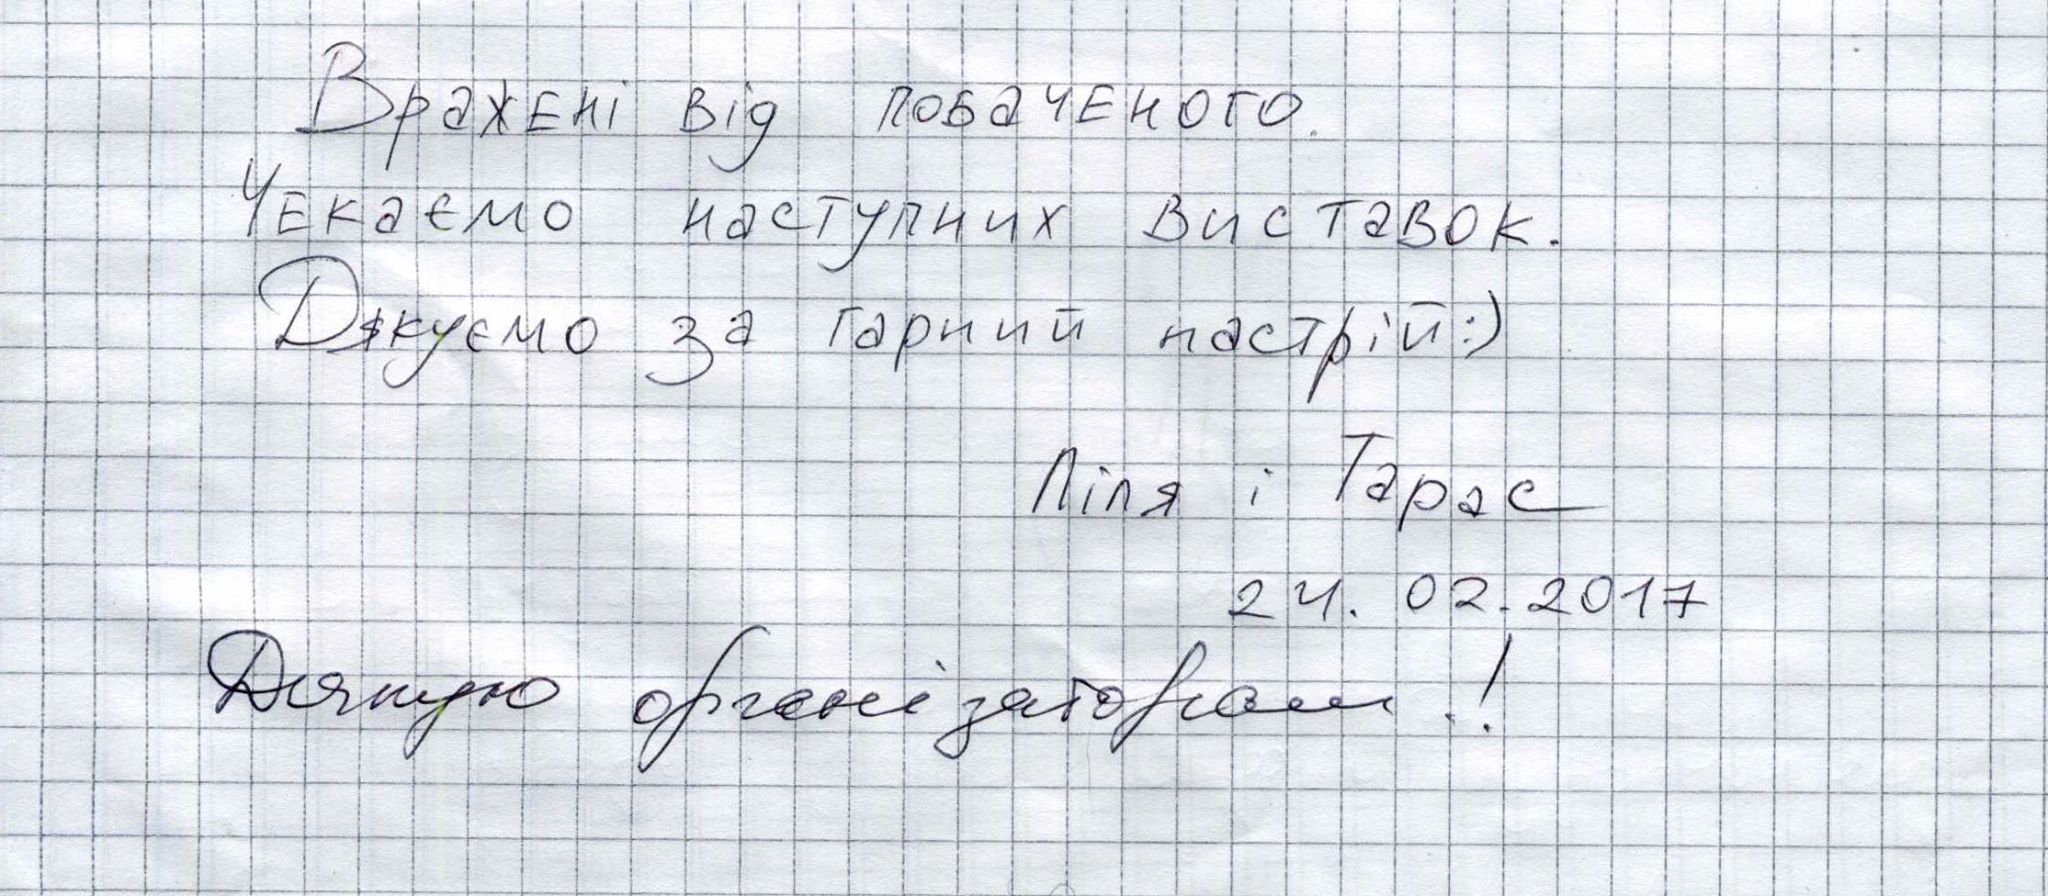 Вражені від побаченого.
Чекаємо наступних виставок.
Дякуємо за гарний настрій:)
Ліля і Тарас
24.02.2017
Дякую організаторам!